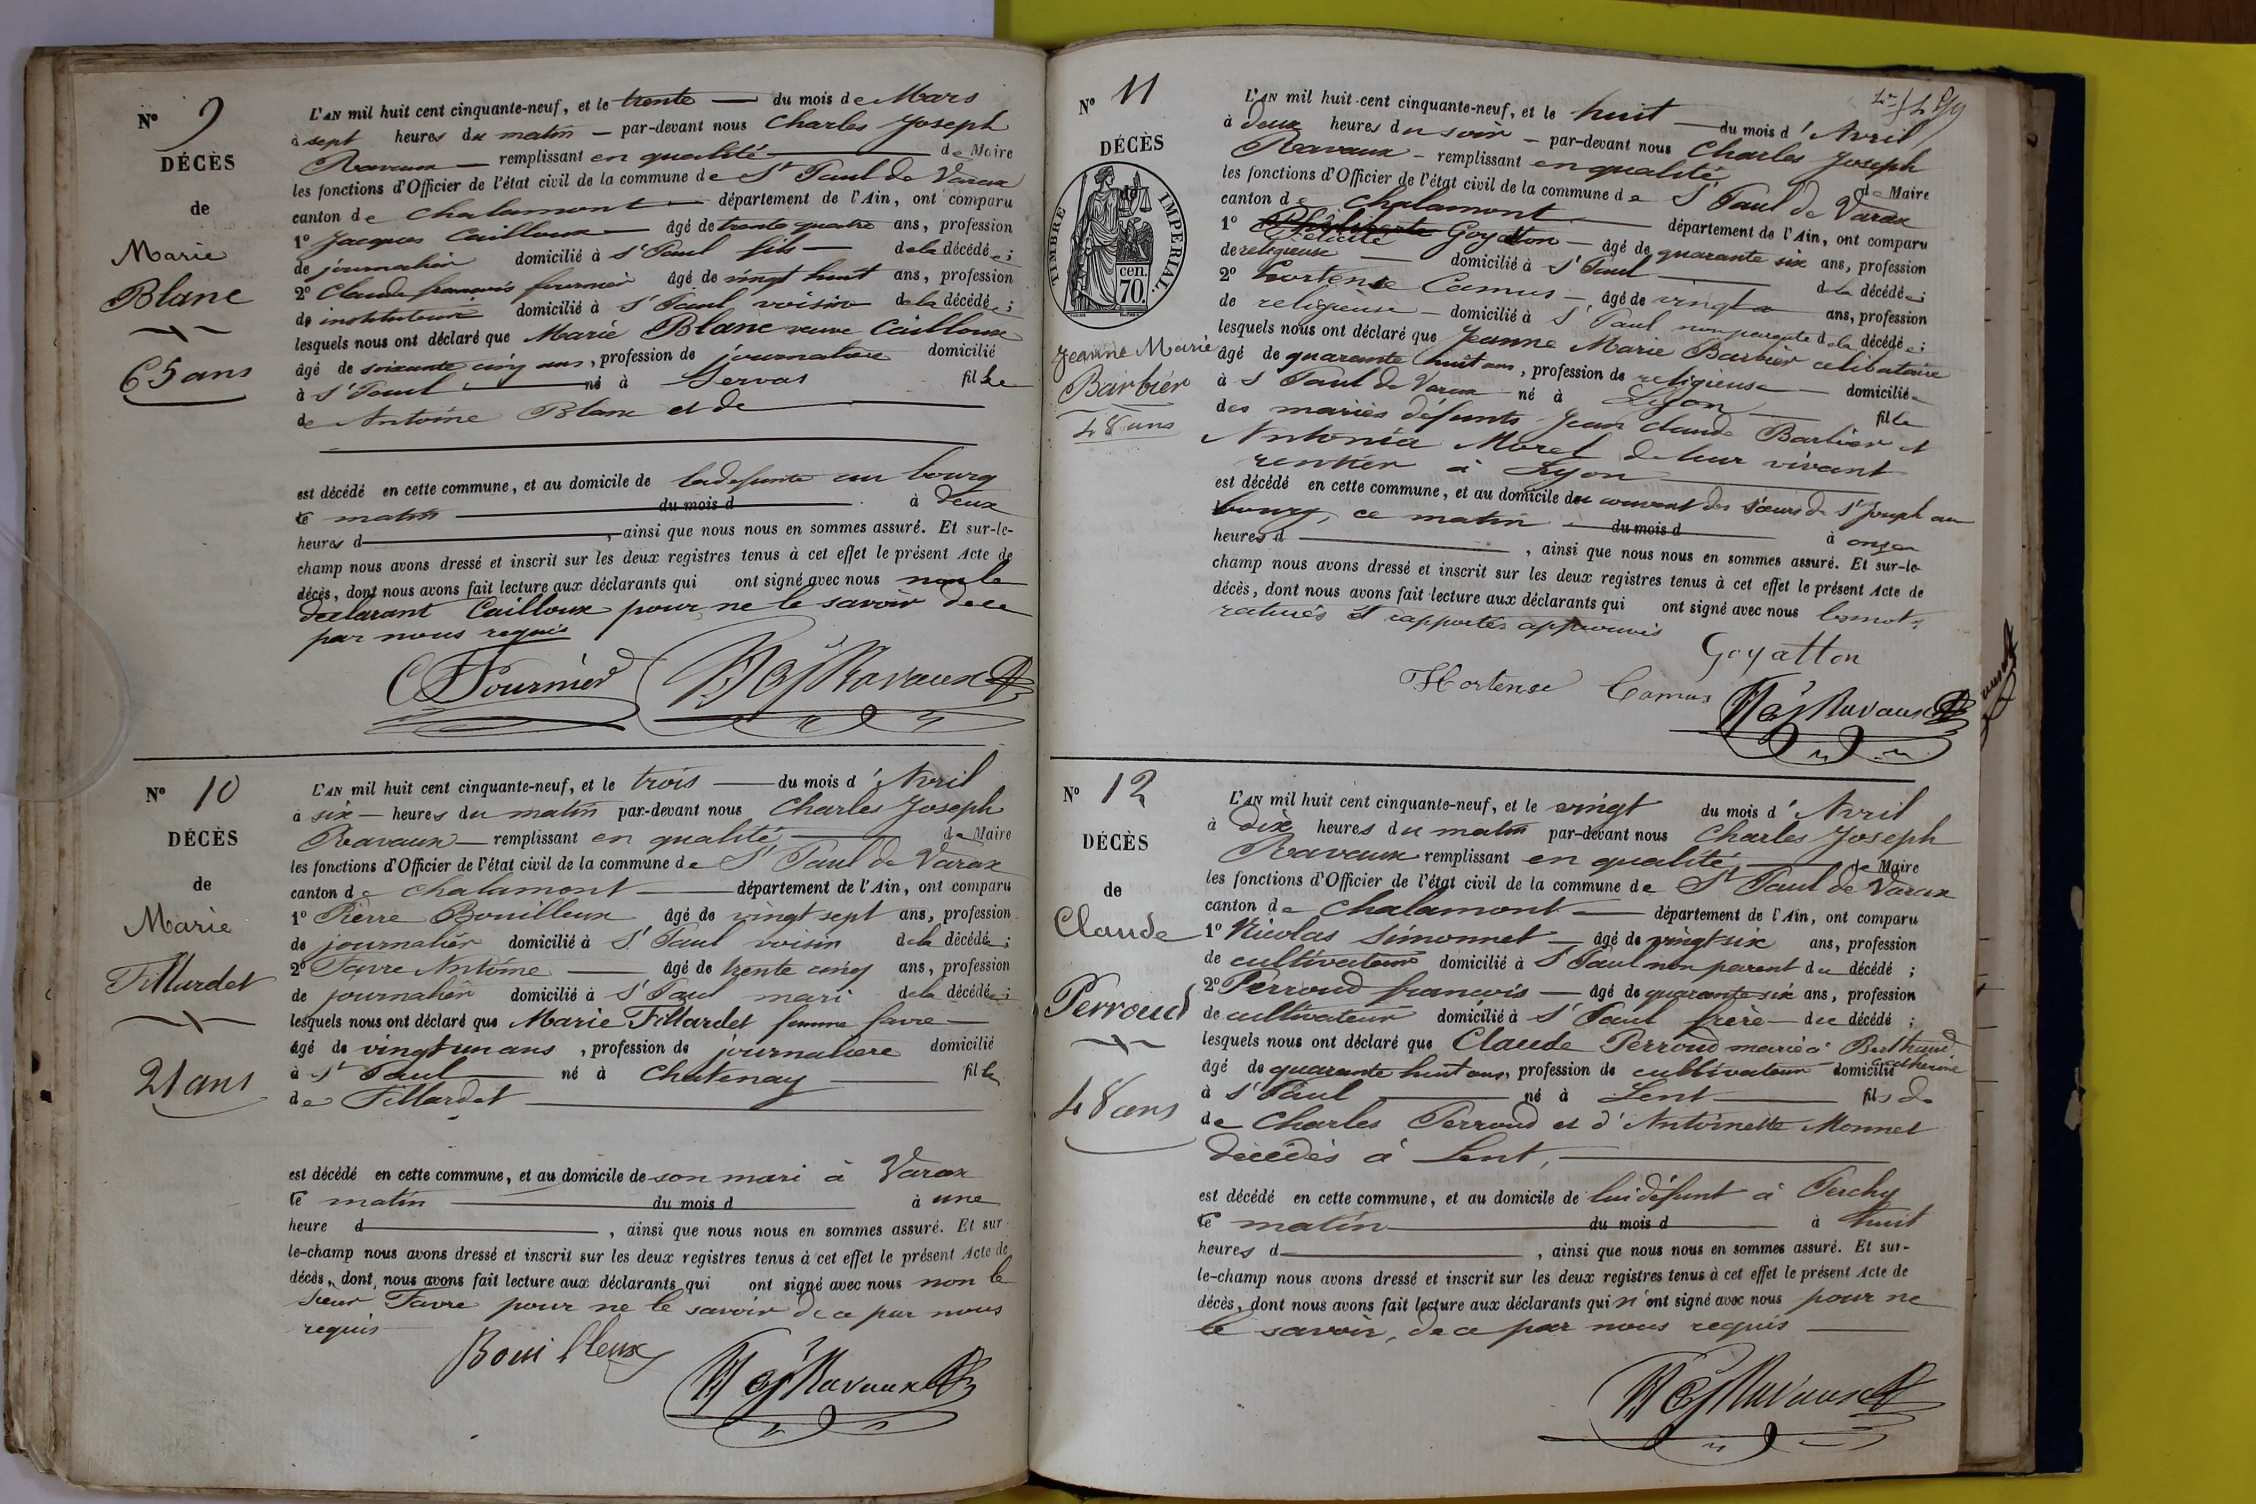 N° 9
DÉCÈS
de
Marie
Blanc
65 ans
L'AN mil huit cent cinquante-neuf, et le trente du mois de Mars
à sept heures du matin par-devant nous Charles Joseph
Ravaux remplissant en qualité de Maire
les fonctions d'Officier de l'état civil de la commune de St Paul de Varax
canton de Chalamont département de l'Ain, ont comparu
1° Jacques Cailloux âgé de trente quatre ans, profession
de journalier domicilié à St Paul fils de la décédée;
2° Claude francois fournier âgé de vingt huit ans, profession
de instituteur domicilié à St Paul voisin de la décédée;
lesquels nous ont déclaré que Marie Blanc veuve Cailloux
âgé de soixante cinq ans, profession de journaliere domicilié
à St Paul né à Servas fille
de Antoine Blanc et de
est décédé en cette commune, et au domicile de la defunte au bourg
ce matin du mois d à deux
heures d , ainsi que nous nous en sommes assuré. Et sur-le-
champ nous avons dressé et inscrit sur les deux registres tenus à cet effet le présent Acte de
décès, dont nous avons fait lecture aux déclarants qui ont signé avec nous non le
declarant Cailloux pour ne le savoir de ce
par nous requis
Fournier Ravaux
N° 10
DÉCÈS
de
Marie
Fillardet
21 ans
L'AN mil huit cent cinquante-neuf, et le trois du mois d'Avril
à six heures du matin par-devant nous Charles Joseph
Ravaux remplissant en qualité de Maire
les fonctions d'Officier de l'état civil de la commune de St Paul de Varax
canton de Chalamont département de l'Ain, ont comparu
1° Pierre Bouilleux âgé de vingt sept ans, profession
de journalier domicilié à St Paul voisin de la décédée;
2° Favre Antoine âgé de trente cinq ans, profession
de journalier domicilié à St Paul mari de la décédée;
lesquels nous ont déclaré que Marie Fillardet femme favre
âgé de vingt un ans, profession de journaliere domicilié
à St Paul né à Chatenay fille
de Fillardet
est décédé en cette commune, et au domicile de son mari à Varax
ce matin du mois d à une
heure d , ainsi que nous nous en sommes assuré. Et sur
le-champ nous avons dressé et inscrit sur les deux registres tenus à cet effet le présent Acte de
décès, dont nous avons fait lecture aux déclarants qui ont signé avec nous non le
sieur Favre pour ne le savoir de ce par nous
requis
Bouilleux Ravaux
N° 11
DÉCÈS
TIMBRE IMPERIAL
70 cen.
Jeanne Marie
Barbier
48 ans
L'AN mil huit cent cinquante-neuf, et le huit du mois d'Avril
à deux heures du soir par-devant nous Charles Joseph
Ravaux remplissant en qualité de Maire
les fonctions d'Officier de l'état civil de la commune de St Paul de Varax
canton de Chalamont département de l'Ain, ont comparu
1° Philiberte Felicité Goyatton âgé de quarante six ans, profession
de religieuse domicilié à St Paul de la décédée;
2° hortense Camus âgé de vingt ans, profession
de religieuse domicilié à St Paul non parente de la décédée;
lesquels nous ont déclaré que Jeanne Marie Barbier celibataire
âgé de quarante huit ans, profession de religieuse domicilié
à St Paul de Varax né à Lyon fille
des mariés defunts Jean Claude Barbier et
Antonia Morel de leur vivant
rentier à Lyon
est décédé en cette commune, et au domicile du couvent des sœurs de St Joseph au
bourg, ce matin du mois d à onze
heures d , ainsi que nous nous en sommes assuré. Et sur-le-
champ nous avons dressé et inscrit sur les deux registres tenus à cet effet le présent Acte de
décès, dont nous avons fait lecture aux déclarants qui ont signé avec nous les mots
raturés et rapportés approuvés
Goyatton
Hortense Camus Ravaux
N° 12
DÉCÈS
de
Claude
Perroud
48 ans
L'AN mil huit cent cinquante-neuf, et le vingt du mois d'Avril
à dix heures du matin par-devant nous Charles Joseph
Ravaux remplissant en qualité de Maire
les fonctions d'Officier de l'état civil de la commune de St Paul de Varax
canton de Chalamont département de l'Ain, ont comparu
1° Nicolas Simonnet âgé de vingt six ans, profession
de cultivateur domicilié à St Paul non parent du décédé;
2° Perroud francois âgé de quarante six ans, profession
de cultivateur domicilié à St Paul frère du décédé;
lesquels nous ont déclaré que Claude Perroud marié à Berthaud
Catherine
âgé de quarante huit ans, profession de cultivateur domicilié
à St Paul né à Lent fils de
de Charles Perroud et d'Antoinette Monnet
décédés à Lent,
est décédé en cette commune, et au domicile de lui défunt à Perchy
ce matin du mois d à huit
heures d , ainsi que nous nous en sommes assuré. Et sur-
le-champ nous avons dressé et inscrit sur les deux registres tenus à cet effet le présent Acte de
décès, dont nous avons fait lecture aux déclarants qui n'ont signé avec nous pour ne
le savoir, de ce par nous requis
Ravaux